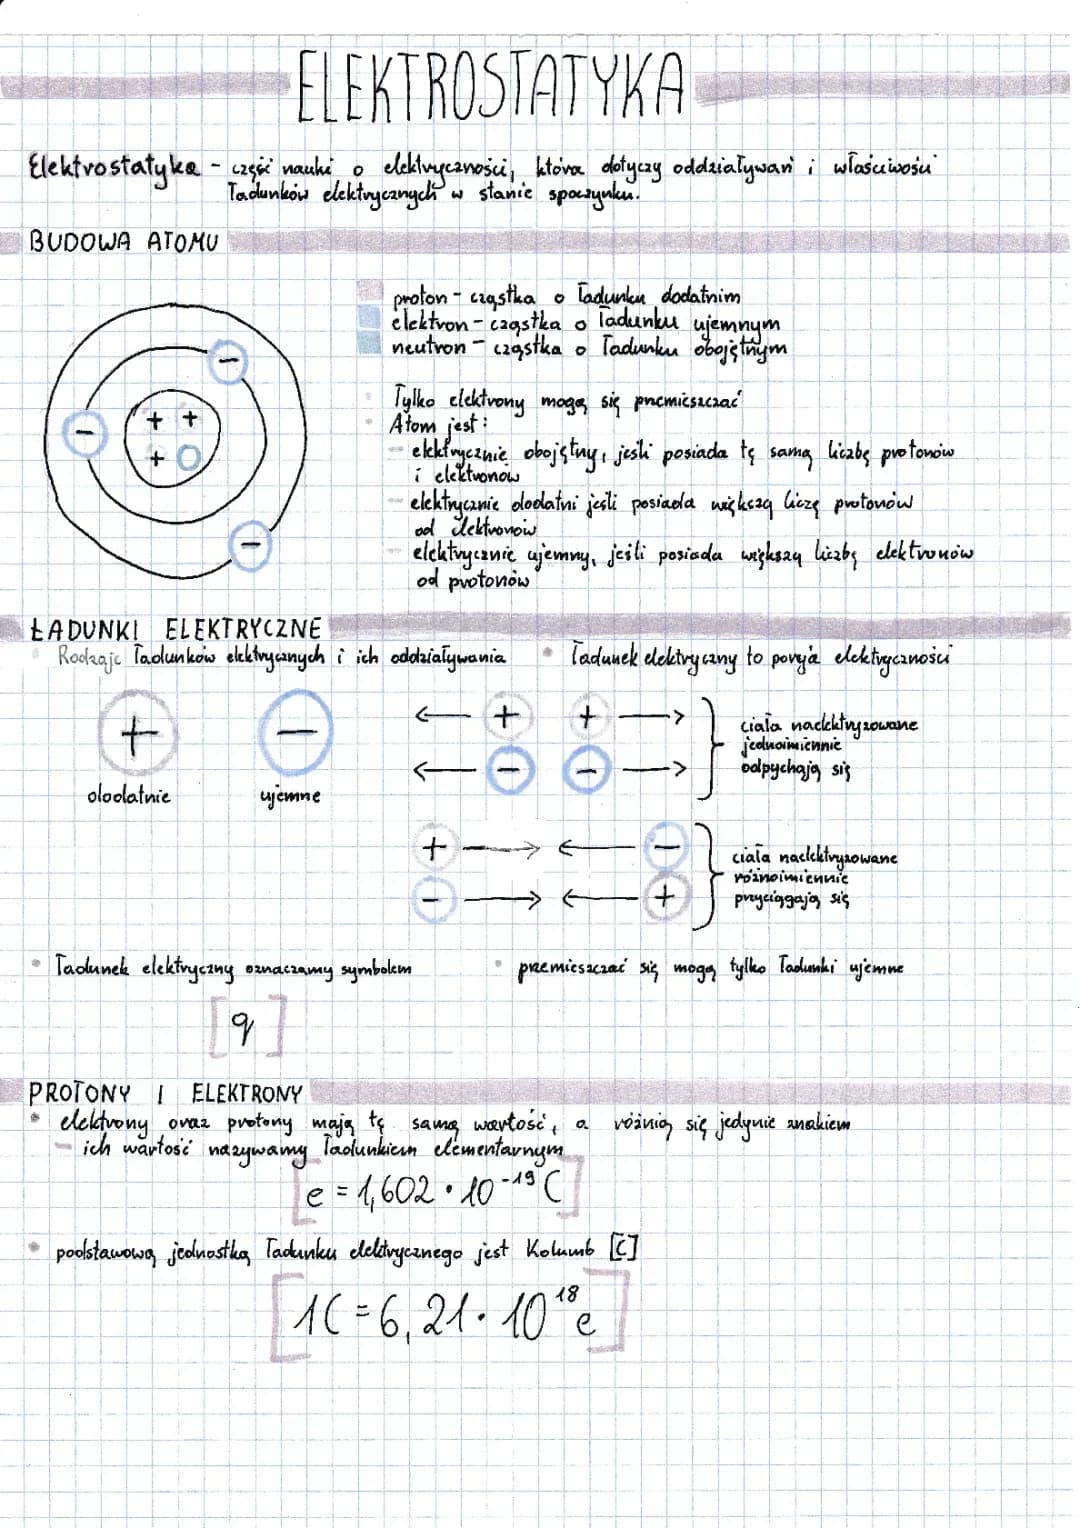 ELEKTROSTATYKA
Elektrostatyka - część nauki o elektryczności, która dotyczy oddziaływań i właściwości
ładunków elektrycznych w stanie spoczynku.
BUDOWA ATOMU
proton - cząstka o ładunku dodatnim
elektron - cząstka o ładunku ujemnym
neutron - cząstka o ładunku obojętnym
Tylko elektrony mogą się przemieszczać
Atom jest:
- elektrycznie obojętny, jeśli posiada tę samą liczbę protonów
i elektronów
- elektrycznie dodatni jeśli posiada większą liczę protonów
od elektronów
- elektrycznie ujemny, jeśli posiada większą liczbę elektronów
od protonów
- -
+ +
+
-
ŁADUNKI ELEKTRYCZNE
Rodzaje ładunków elektrycznych i ich oddziaływania
• ładunek elektryczny to porcja elektryczności
+ -
dodatnie ujemne
← + + →
← - - →
ciała naelektryzowane
jednoimiennie
odpychają się
+ → ← -
- → ← +
ciała naelektryzowane
różnoimiennie
przyciągają się
• ładunek elektryczny oznaczamy symbolem
[q]
• przemieszczać się mogą tylko ładunki ujemne
PROTONY I ELEKTRONY
• elektrony oraz protony mają tę samą wartość, a różnią się jedynie znakiem
- ich wartość nazywamy ładunkiem elementarnym
[e = 1,602 • 10⁻¹⁹ C]
• podstawową jednostką ładunku elektrycznego jest Kolumb [C]
[1C = 6,21 • 10¹⁸ e]